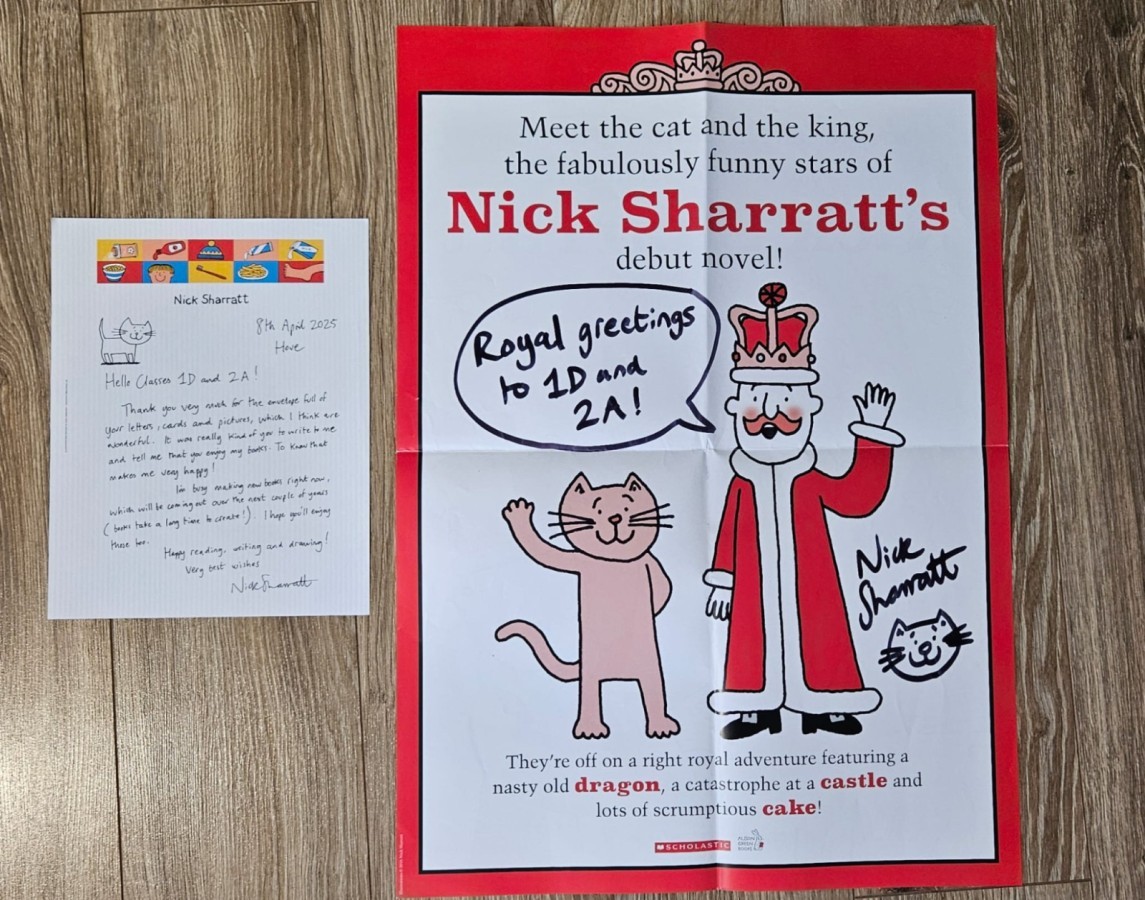 Nick Sharratt
8th April 2025
Hove
Hello Classes 1D and 2A!
Thank you very much for the envelope full of
your letters, cards and pictures, which I think are
wonderful. It was really kind of you to write to me
and tell me that you enjoy my books. To know that
makes me very happy!
I'm busy making new books right now,
which will be coming out over the next couple of years
(books take a long time to create!). I hope you'll enjoy
those too.
Happy reading, writing and drawing!
Very best wishes
Nick Sharratt
Meet the cat and the king,
the fabulously funny stars of
Nick Sharratt's
debut novel!
Royal greetings
to 1D and
2A!
Nick
Sharratt
They're off on a right royal adventure featuring a
nasty old dragon, a catastrophe at a castle and
lots of scrumptious cake!
SCHOLASTIC